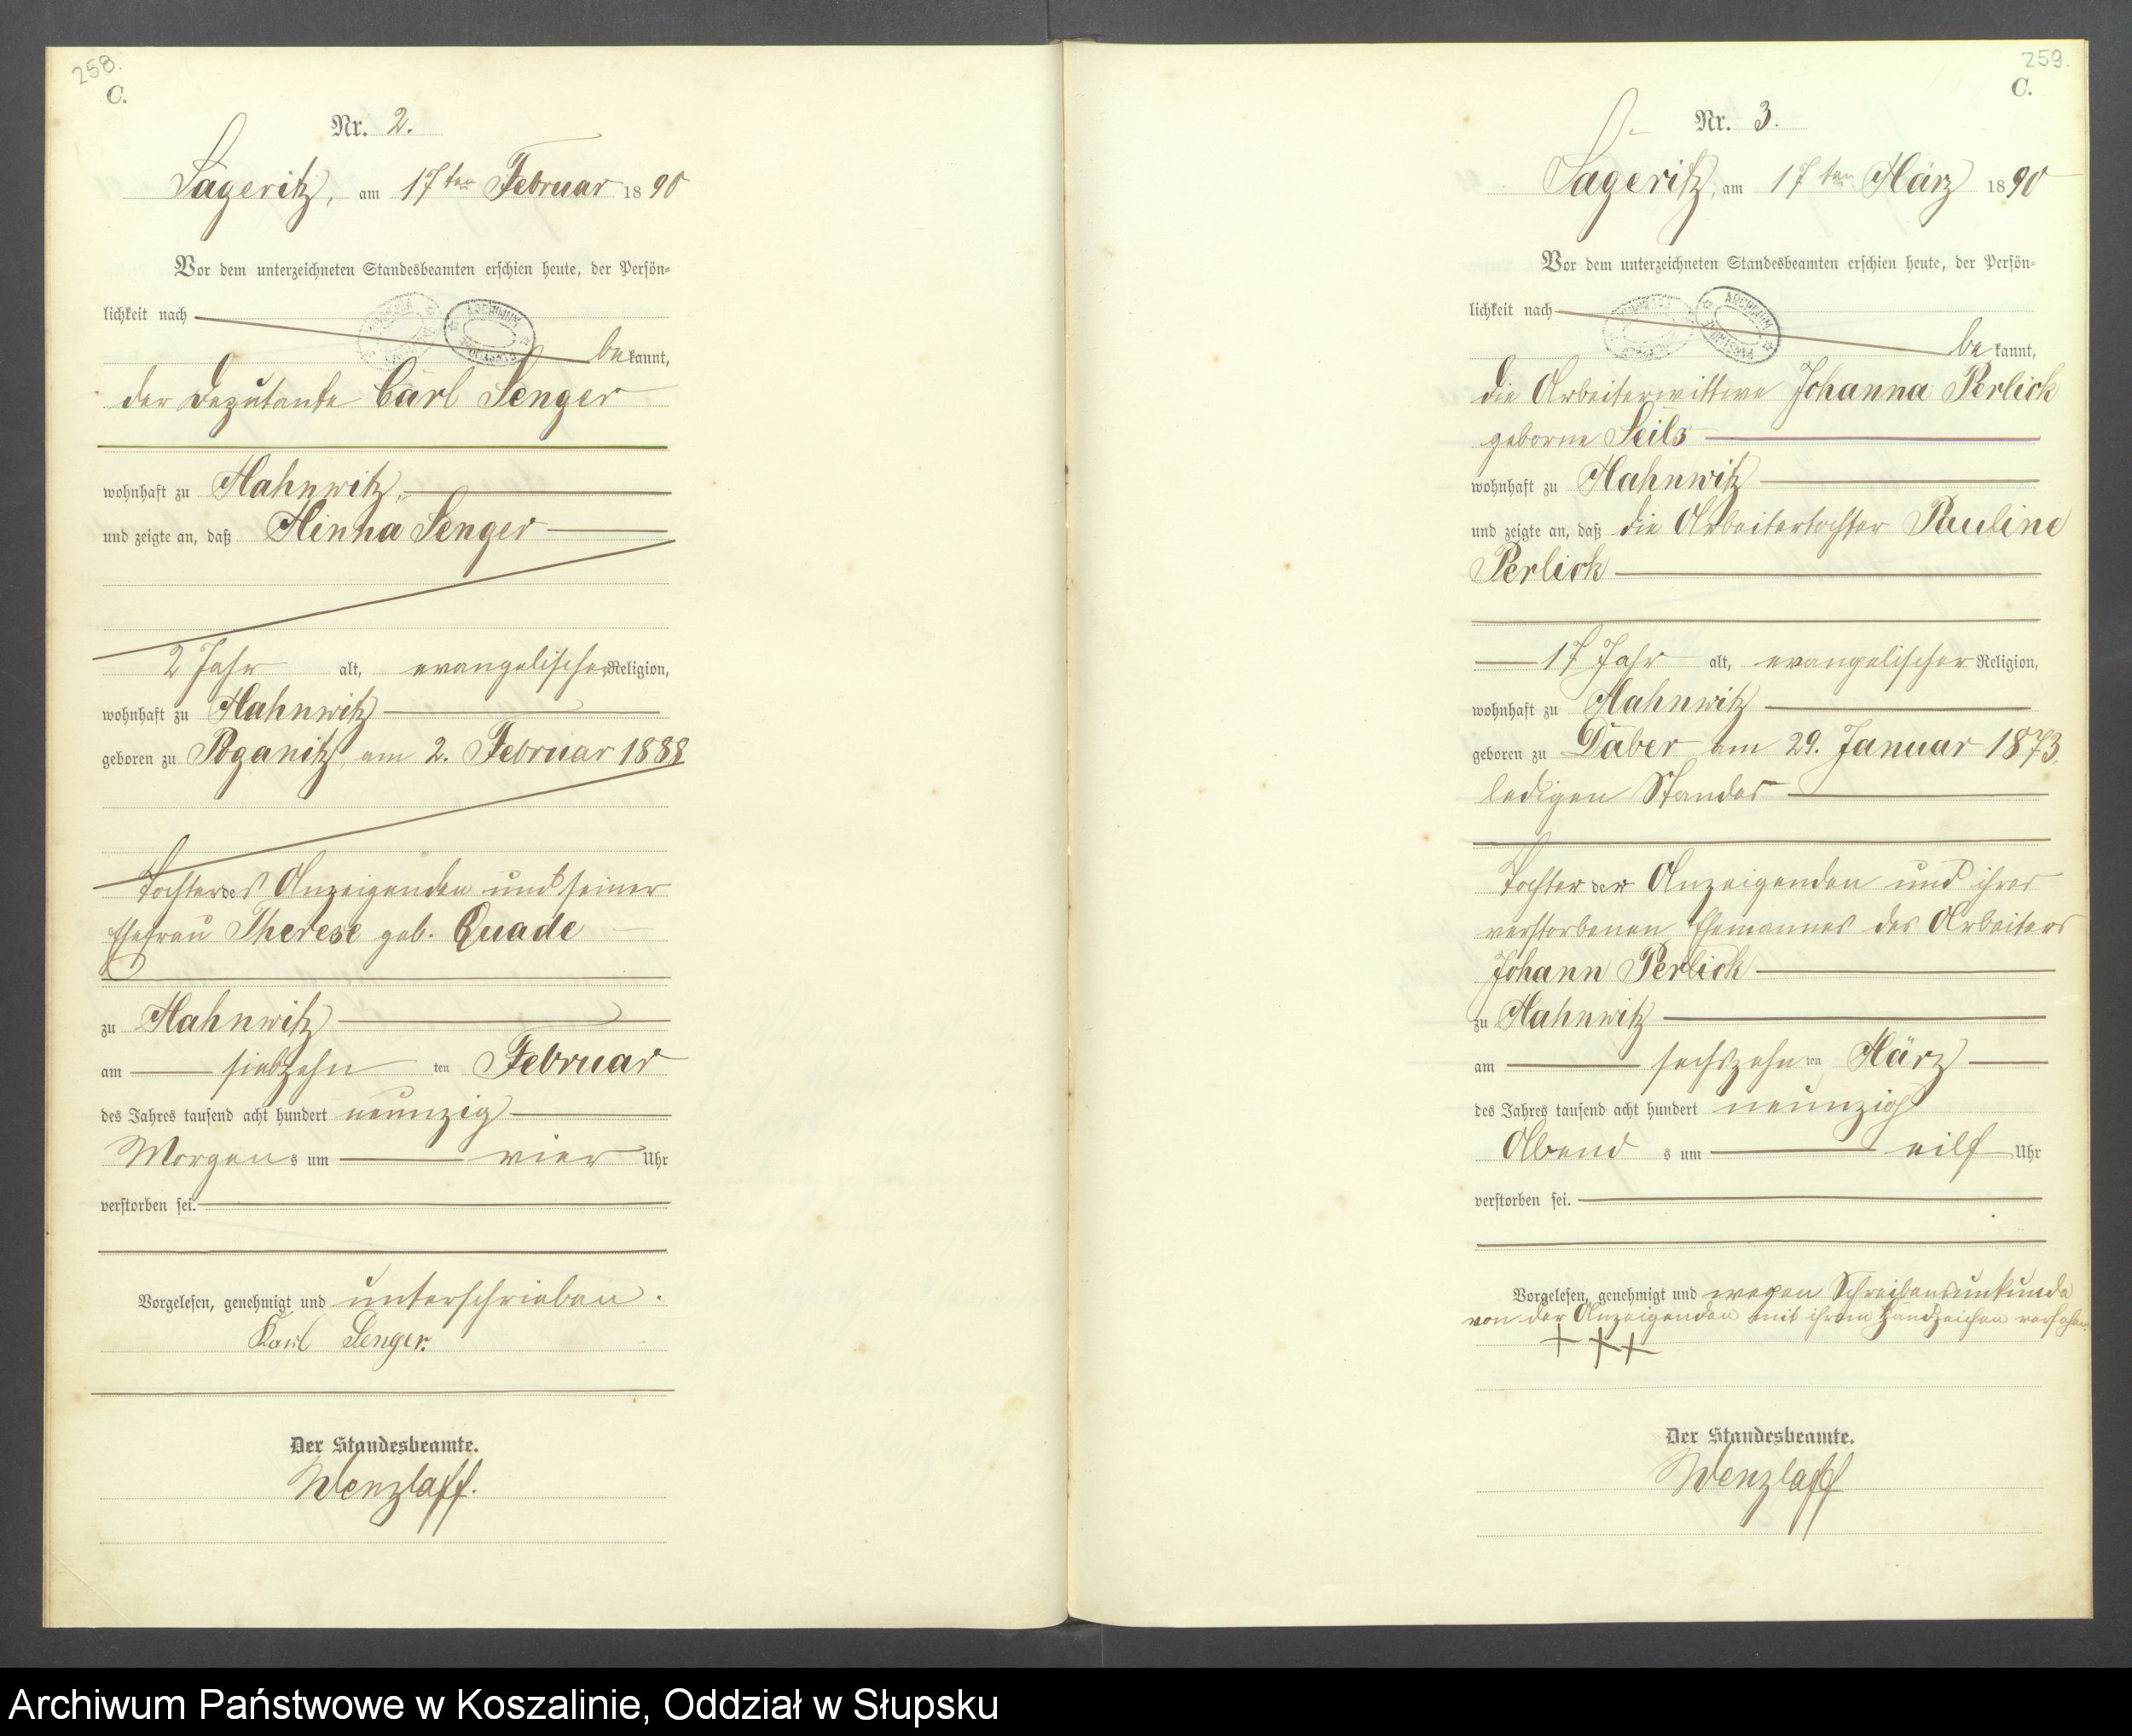 258.
C.
Nr. 2.
Sageritz, am 17ten Februar 1890
Vor dem unterzeichneten Standesbeamten erschien heute, der Persön=
lichkeit nach
bekannt,
der Deputante Carl Senger
wohnhaft zu Hahnwitz,
und zeigte an, daß Minna Senger
2 Jahr alt, evangelischer Religion,
wohnhaft zu Hahnwitz
geboren zu Poganitz, am 2. Februar 1888
Tochter des Anzeigenden und seiner
Ehefrau Therese geb. Quade
zu Hahnwitz
am siebzehn ten Februar
des Jahres tausend acht hundert neunzig
Morgens um vier Uhr
verstorben sei.
Vorgelesen, genehmigt und unterschrieben.
Karl Senger.
Der Standesbeamte.
Wenzlaff.
259.
C.
Nr. 3.
Sageritz, am 17ten März 1890
Vor dem unterzeichneten Standesbeamten erschien heute, der Persön=
lichkeit nach
bekannt,
die Arbeiterwittwe Johanna Perlick
geborne Seils
wohnhaft zu Hahnwitz
und zeigte an, daß die Arbeitertochter Pauline
Perlick
17 Jahr alt, evangelischer Religion,
wohnhaft zu Hahnwitz
geboren zu Daber am 29. Januar 1873,
ledigen Standes
Tochter der Anzeigenden und ihres
verstorbenen Ehemannes des Arbeiters
Johann Perlick
zu Hahnwitz
am sechszehn ten März
des Jahres tausend acht hundert neunzig
Abend s um eilf Uhr
verstorben sei.
Vorgelesen, genehmigt und wegen Schreibensunkunde
von der Anzeigenden mit ihrem Handzeichen versehen.
+ + +
Der Standesbeamte.
Wenzlaff
Archiwum Państwowe w Koszalinie, Oddział w Słupsku